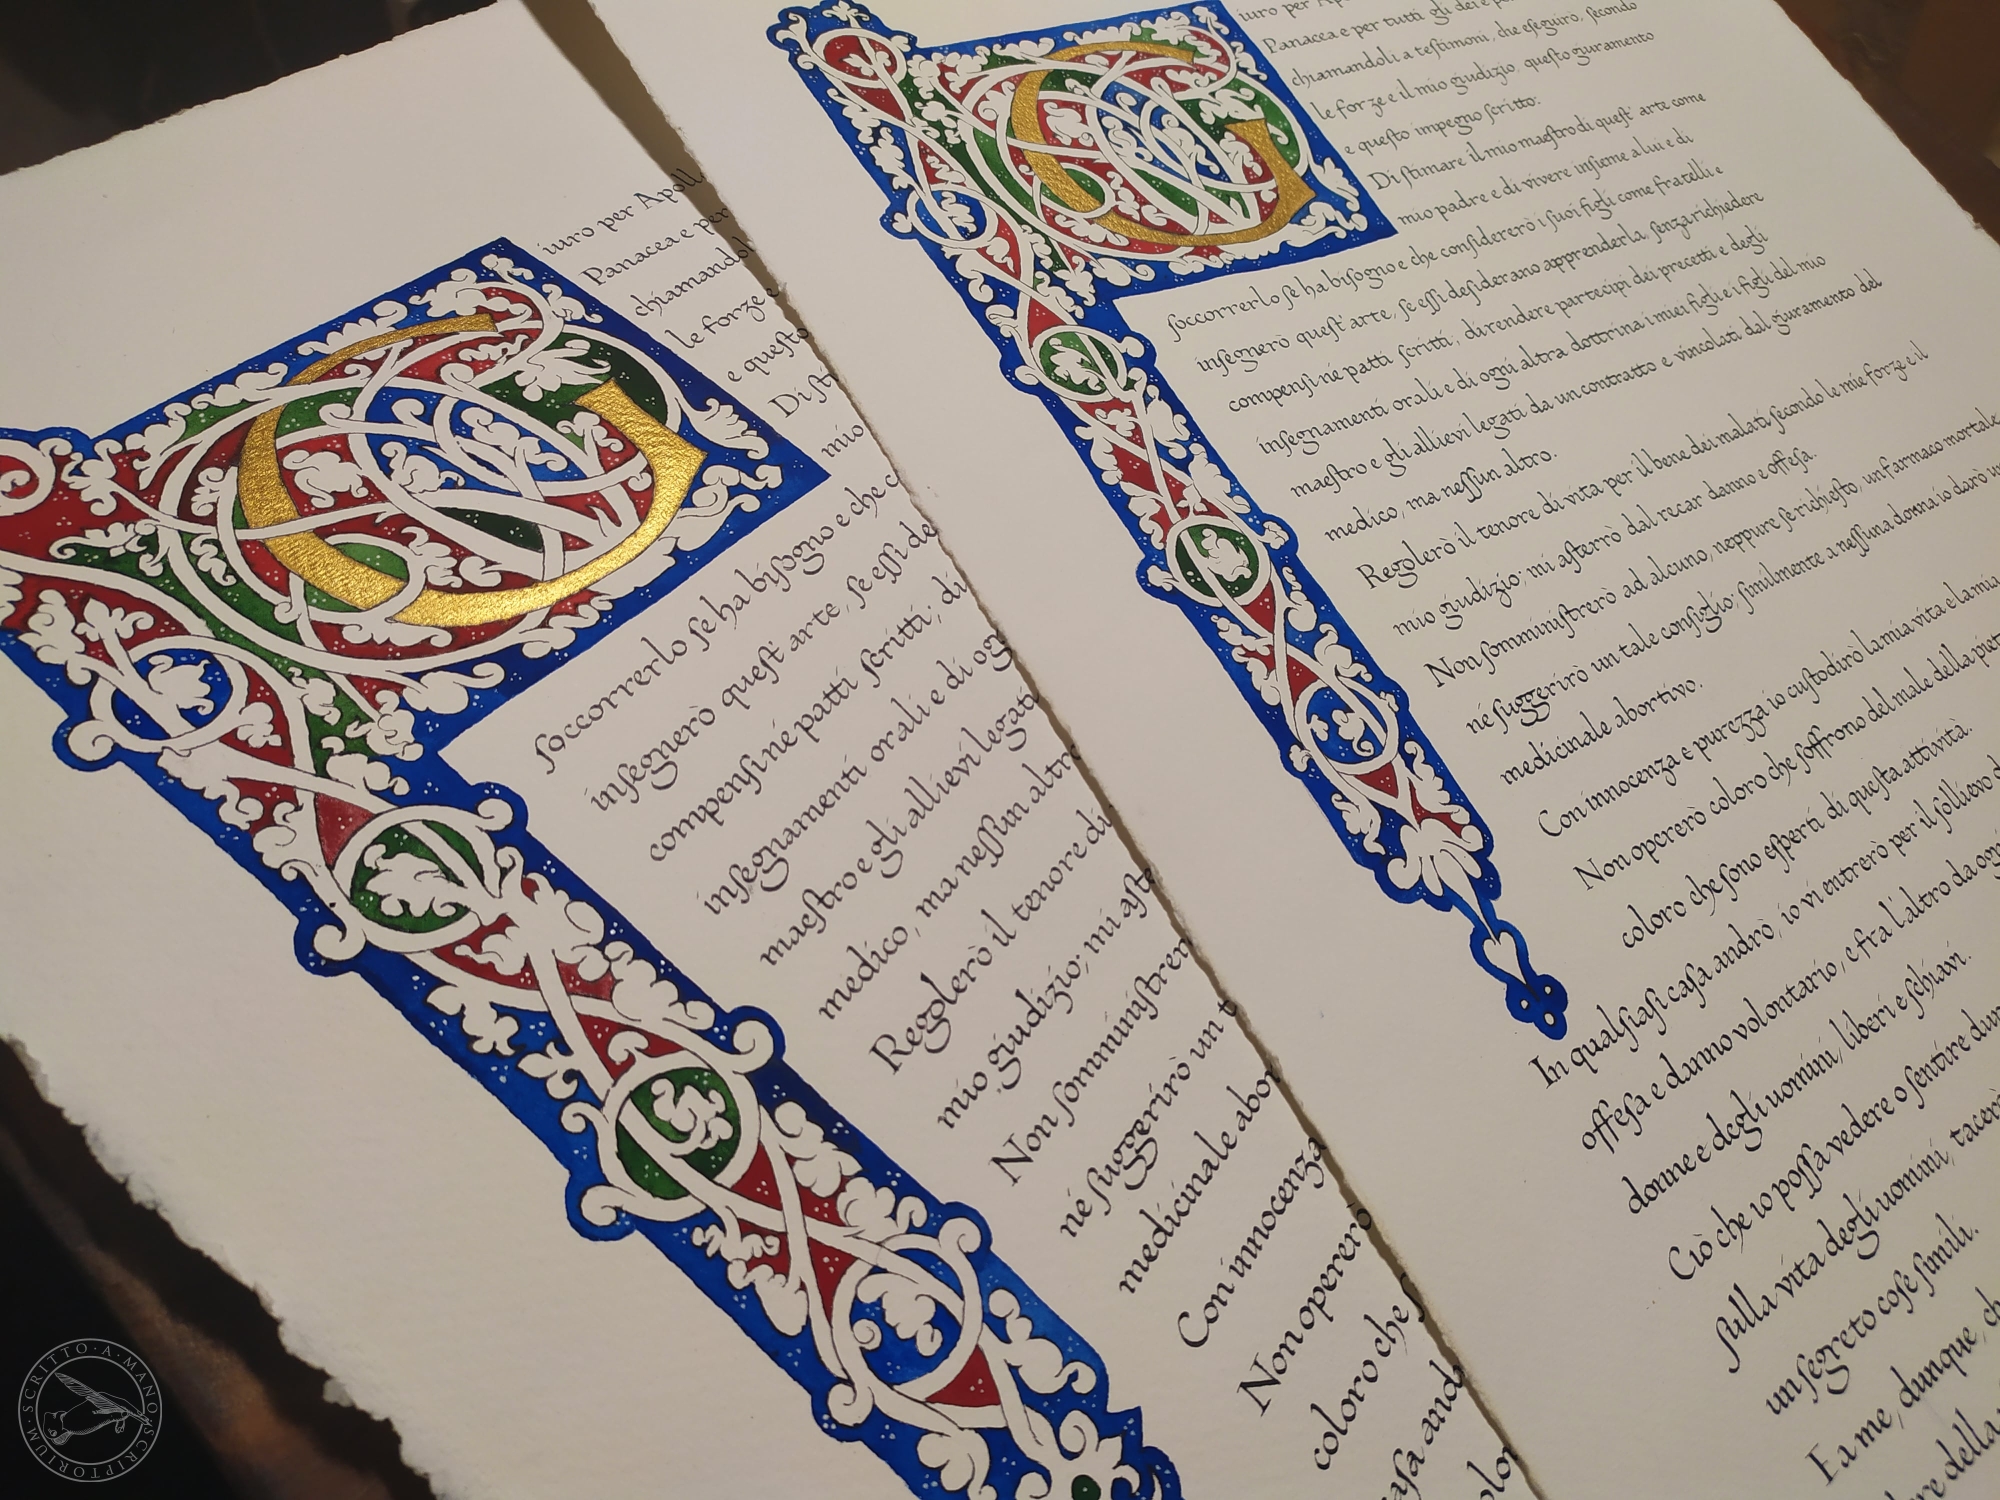 G
iuro per Apoll
Panacea e per
chiamandol
le forze e
e questo
Di sti
mio
soccorrerlo se ha bisogno e che c
insegnerò quest' arte, se essi de
compensi né patti scritti; di
insegnamenti orali e di og
maestro e gli allievi legati
medico, ma nessun altro
Regolerò il tenore di
mio giudizio; mi aste
Non somministrer
né suggerirò un t
medicinale abor
Con innocenza
Non opererò
coloro che s
casa and
G
iuro per Apo
Panacea e per tutti gli dei e p
chiamandoli a testimoni, che eseguirò, secondo
le forze e il mio giudizio, questo giuramento
e questo impegno scritto:
Di stimare il mio maestro di quest' arte come
mio padre e di vivere insieme a lui e di
soccorrerlo se ha bisogno e che considererò i suoi figli come fratelli e
insegnerò quest' arte, se essi desiderano apprenderla, senza richiedere
compensi né patti scritti; di rendere partecipi dei precetti e degli
insegnamenti orali e di ogni altra dottrina i miei figli e i figli del mio
maestro e gli allievi legati da un contratto e vincolati dal giuramento del
medico, ma nessun altro.
Regolerò il tenore di vita per il bene dei malati secondo le mie forze e il
mio giudizio; mi asterrò dal recar danno e offesa.
Non somministrerò ad alcuno, neppure se richiesto, un farmaco mortale,
né suggerirò un tale consiglio; similmente a nessuna donna io darò un
medicinale abortivo.
Con innocenza e purezza io custodirò la mia vita e la mia
Non opererò coloro che soffrono del male della piet
coloro che sono esperti di questa attività.
In qualsiasi casa andrò, io vi entrerò per il sollievo d
offesa e danno volontario, e fra l'altro da ogni
donne e degli uomini, liberi e schiavi.
Ciò che io possa vedere o sentire dur
sulla vita degli uomini, tacerò
un segreto cose simili.
E a me, dunque, ch
della
SCRITTO·A·MANO·SCRIPTORIUM·